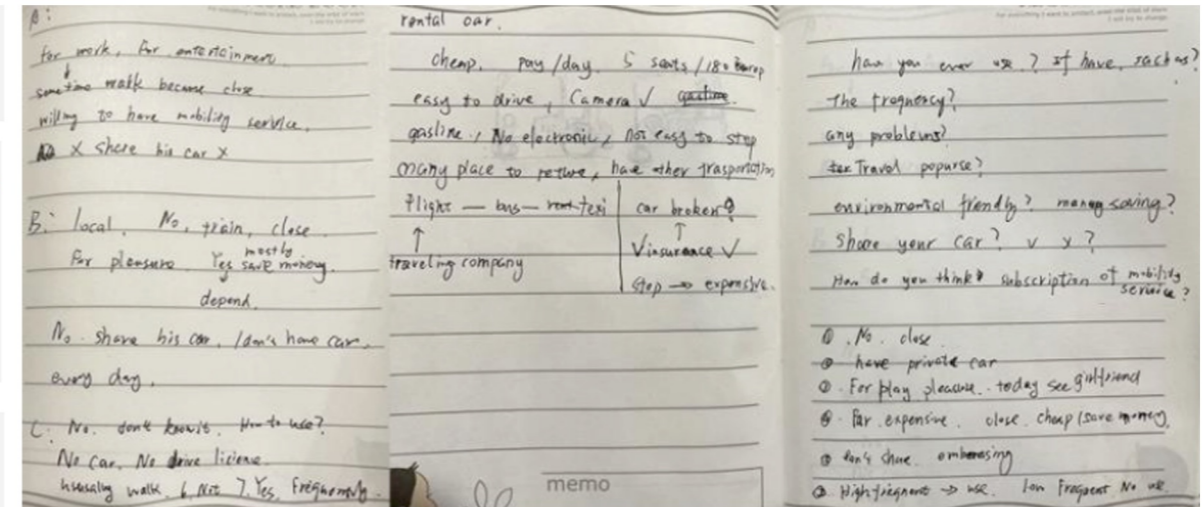 A:
for work, for entertainment
some time walk because close
willing to have mobility service.
X share his car X
B: local. No, train, close.
For pleasure. Yes mostly save money.
depend.
No. share his car. / don't have car.
every day.
C: No. don't know it. How to use?
No car. No drive licience
walk. 6. Not 7. Yes, Frequency.
rental car.
cheap. pay/day. 5 seats / 180
easy to drive, Camera √ gasline.
gasline., No electronic, not easy to stop
many place to , have other trasportation
Flight — bus — rent texi
↑
traveling company
car broker?
↑
√ insurance √
stop → expensive.
have you ever use.? if have, such as?
The freqnency?
any problems?
Travel popurse?
environmental friendly? money saving?
Share your car? v x?
How do you think subscription of mobility service?
①. No. close.
② have private car
③. For play pleasure. today see girlfriend
④. Far. expensive. close. cheap/save money.
⑤ don't share. embaressing
→ use. low frequent No use.
memo